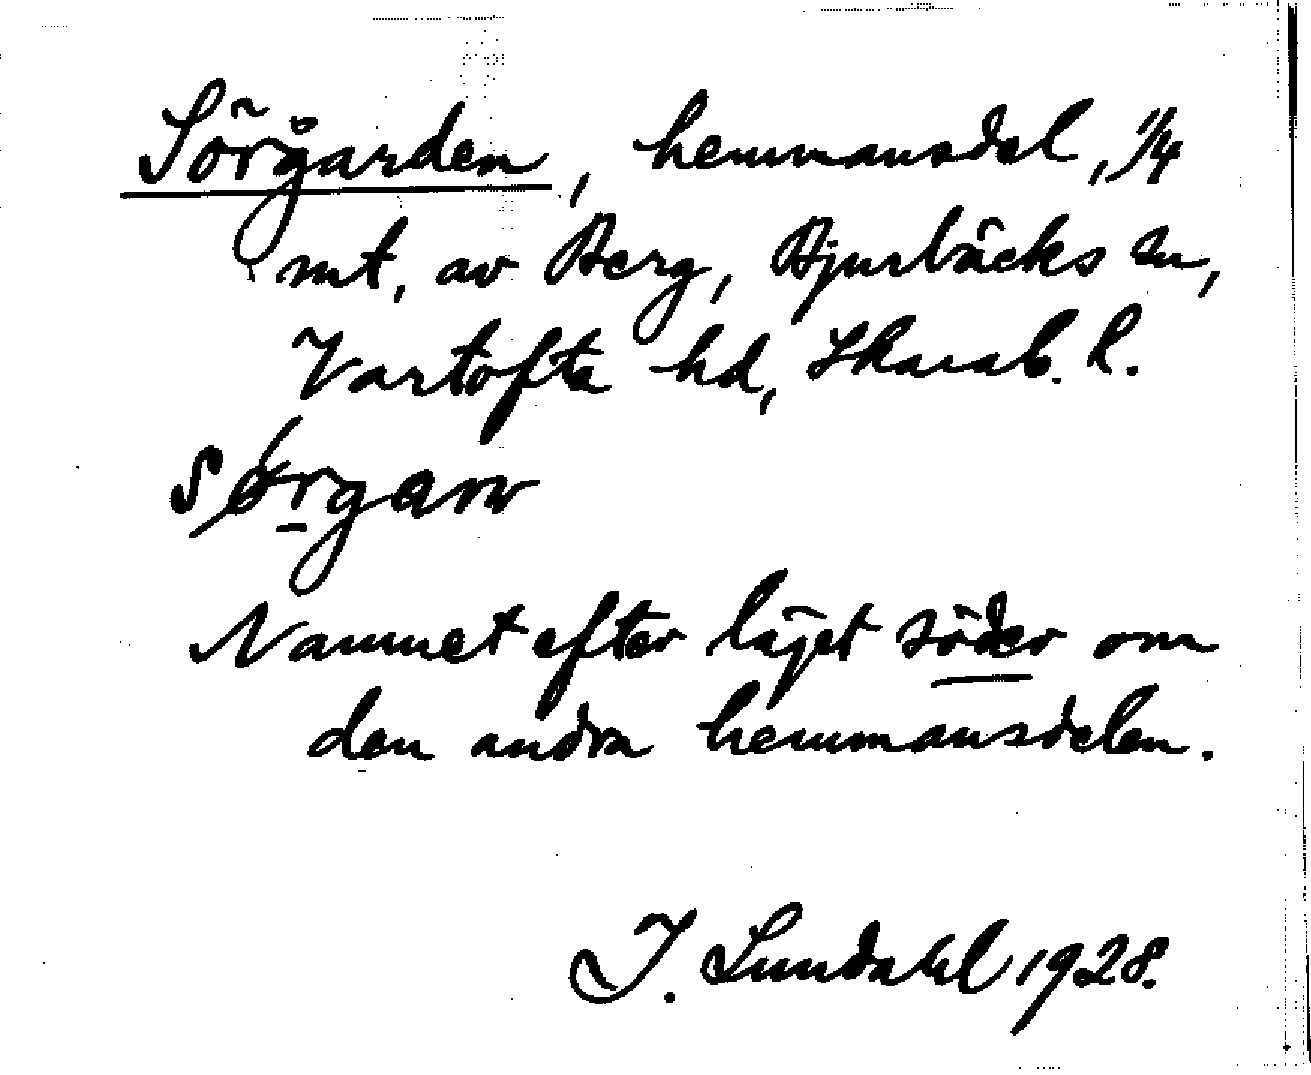 Sörgården, hemmansdel, 1/4
mt, av Berg, Bjurbäcks sn,
Vartofta hd, Skarab. l.
Namnet efter läget söder om
den andra hemmansdelen.
I. Lundahl 1928.